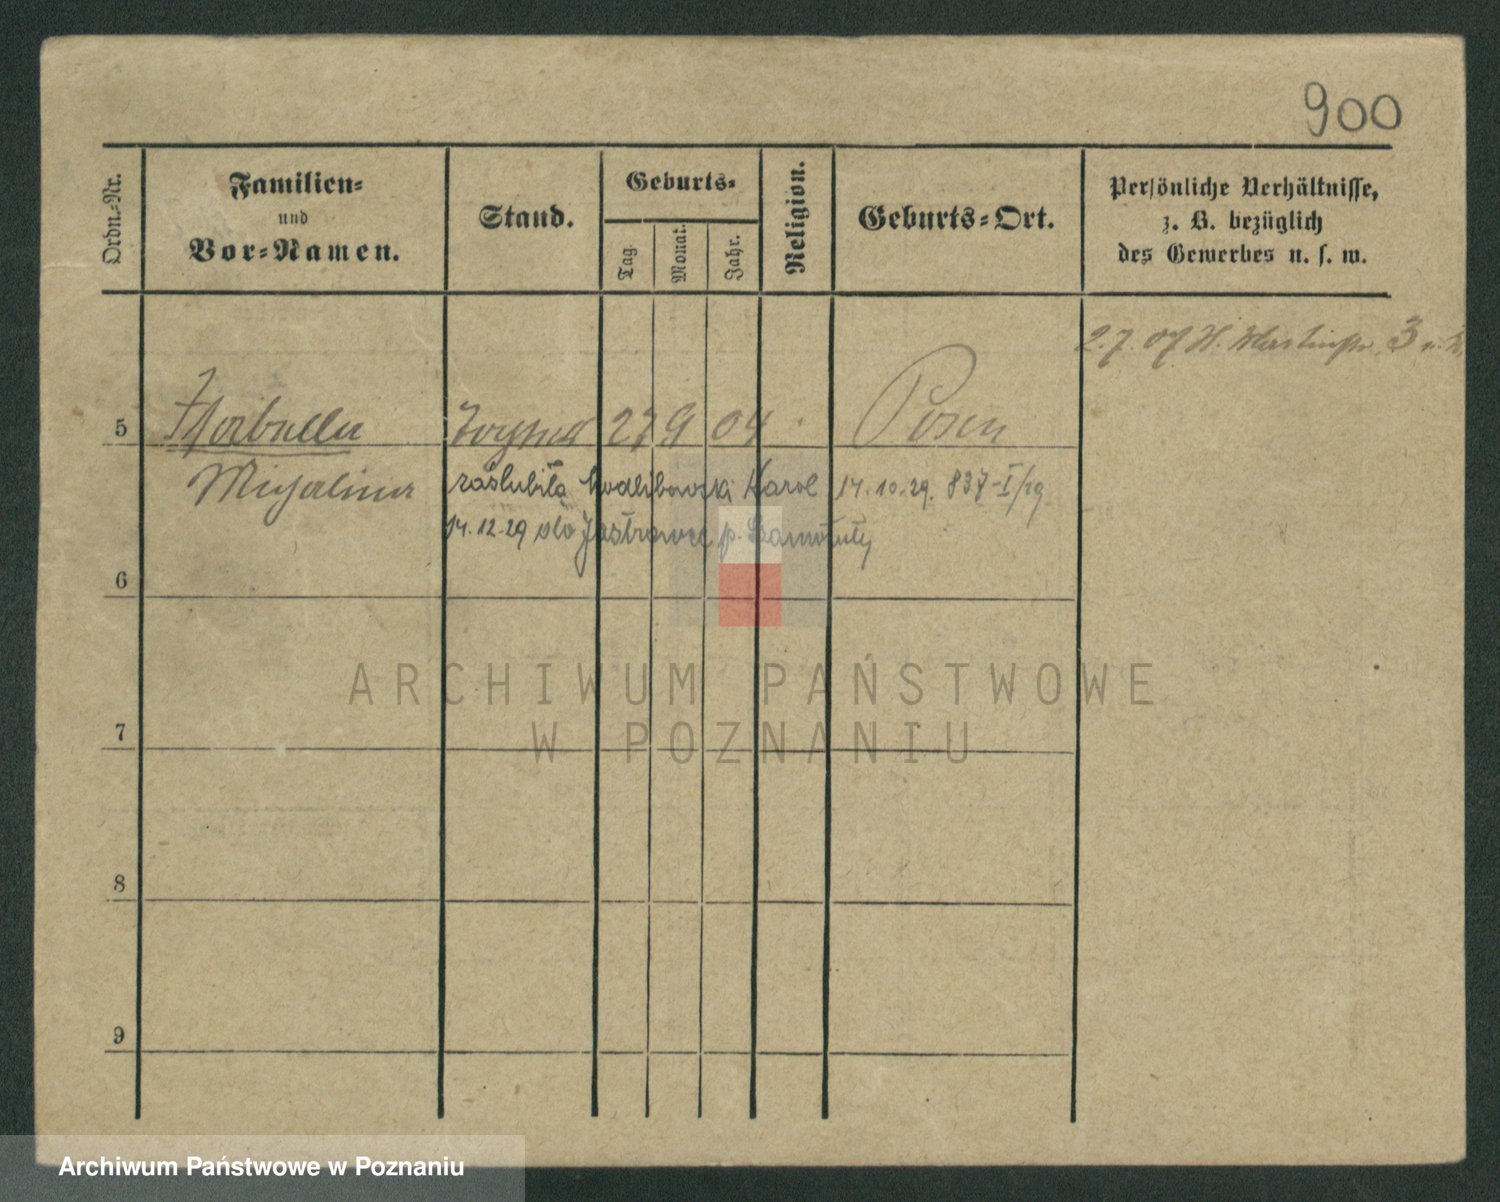 900
Ordn.-Nr.
Familien-
und
Vor-Namen.
Stand.
Geburts-
Tag.
Monat.
Jahr.
Religion.
Geburts-Ort.
Persönliche Verhältnisse,
z. B. bezüglich
des Gewerbes u. s. w.
2.7.07 H. 3
5
27 9 04 Posen
zaślubiła Modlibowski Karol 14.10.29. 837-I/29
14.12.29 do p. Szamotuły
6
7
8
9
ARCHIWUM PAŃSTWOWE
W POZNANIU
Archiwum Państwowe w Poznaniu